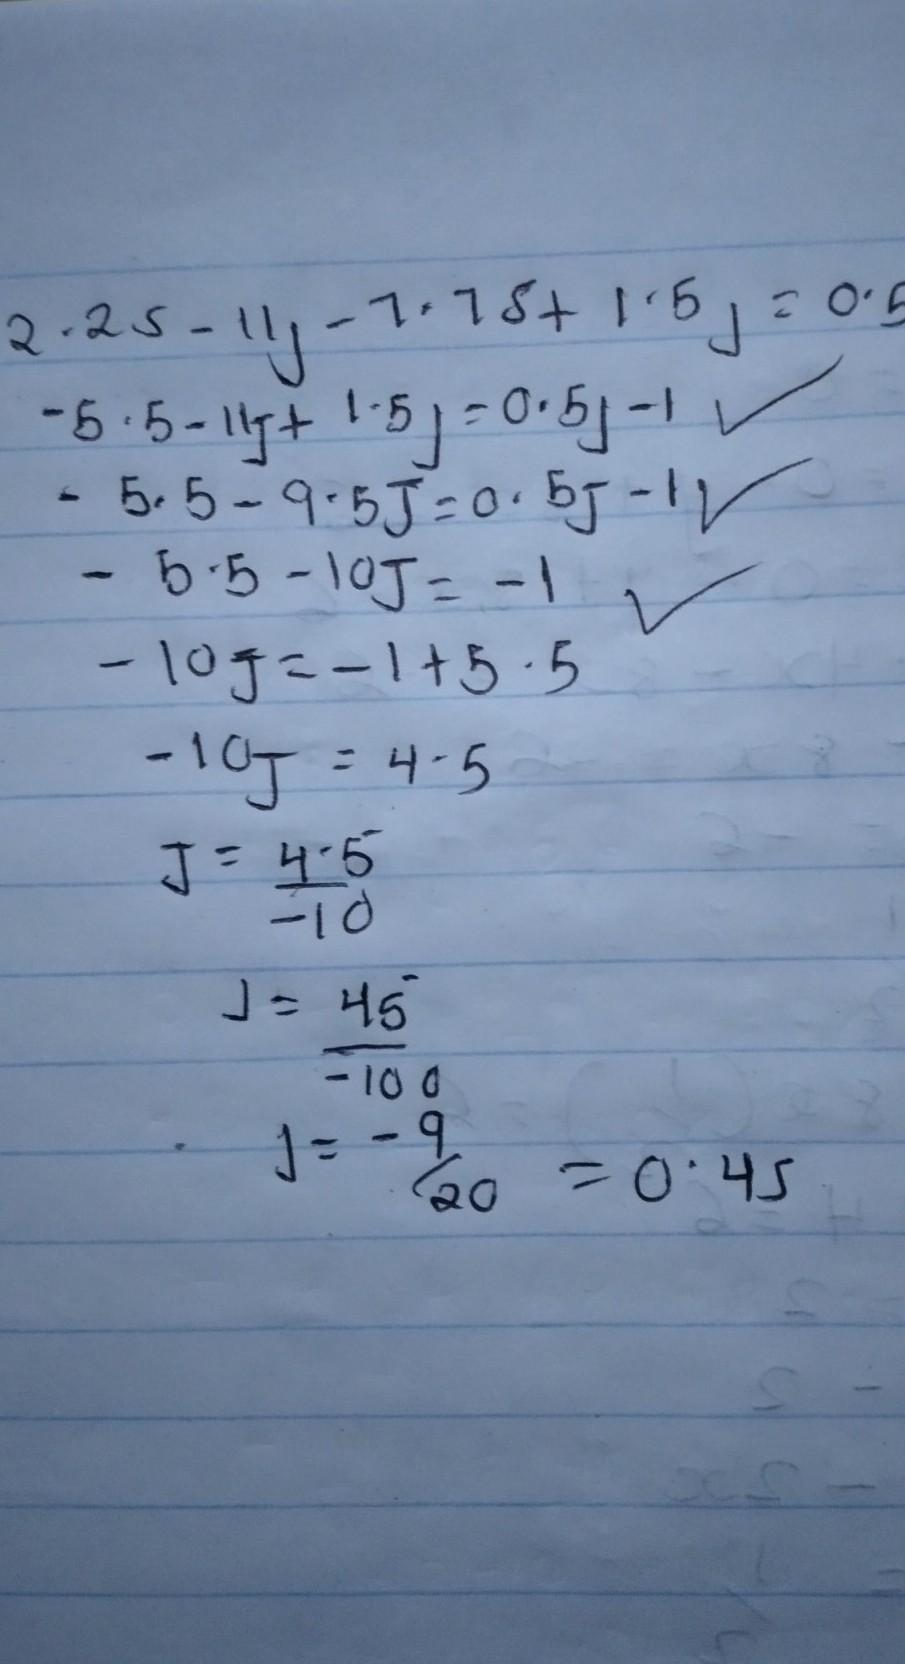 2.25 - 11j - 7.75 + 1.5j = 0.5
-5.5 - 11j + 1.5j = 0.5j - 1 ✓
- 5.5 - 9.5J = 0.5j - 1 ✓
- 5.5 - 10J = - 1 ✓
- 10J = - 1 + 5.5
-10J = 4.5
J = 4.5/-10
J = 45/-100
j = -9/20 = 0.45